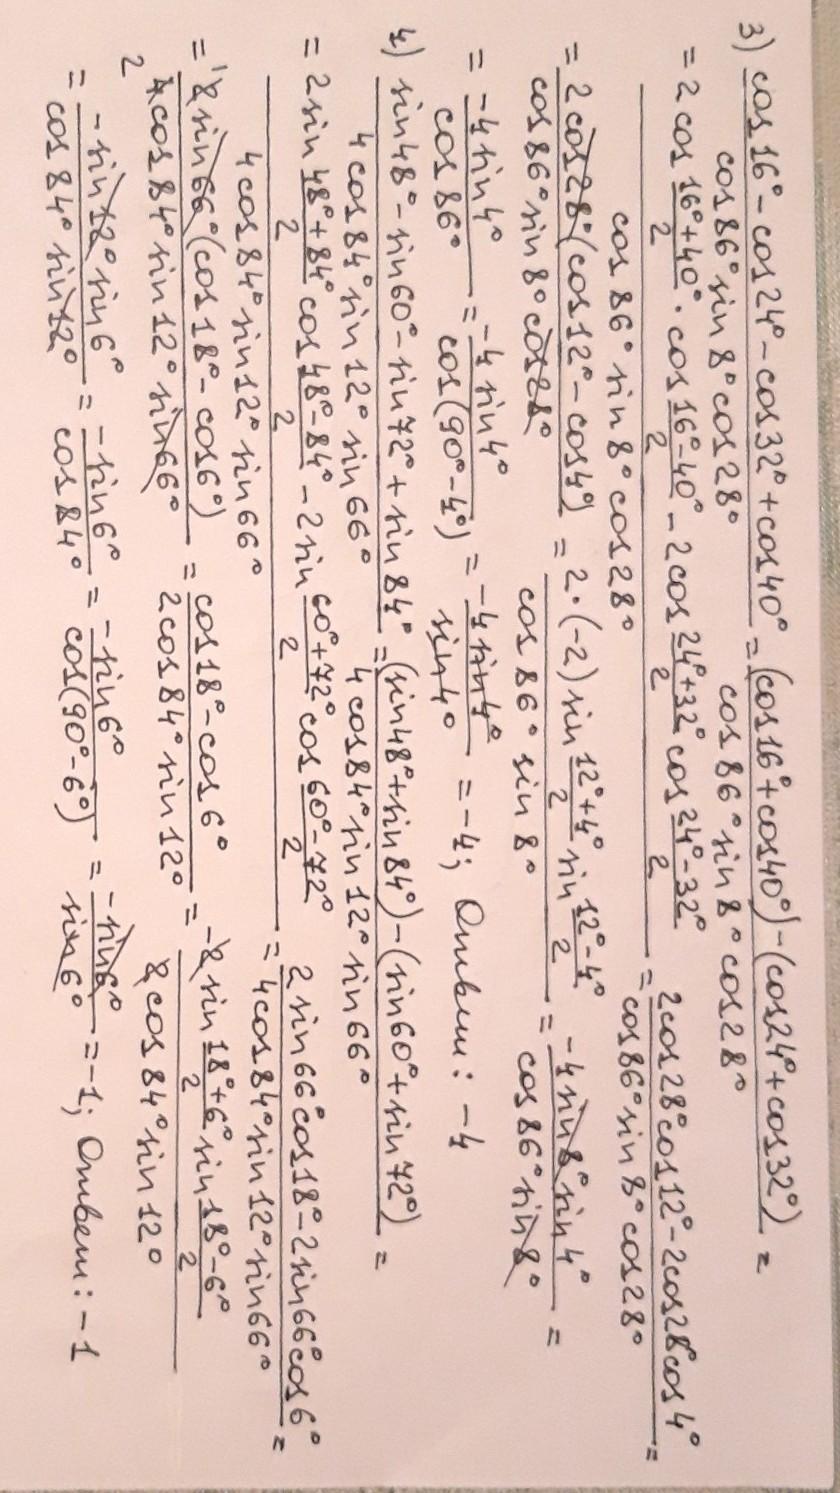 3) (cos16° - cos24° - cos32° + cos40°)/(cos86° sin8° cos28°) = ((cos16° + cos40°) - (cos24° + cos32°))/(cos86° sin8° cos28°) =
= (2 cos (16°+40°)/2 · cos (16°-40°)/2 - 2 cos (24°+32°)/2 cos (24°-32°)/2)/(cos86° sin8° cos28°) = (2cos28° cos12° - 2cos28° cos4°)/(cos86° sin8° cos28°) =
= (2 cos28° (cos12° - cos4°))/(cos86° sin8° cos28°) = (2·(-2) sin (12°+4°)/2 sin (12°-4°)/2)/(cos86° sin8°) = (-4 sin8° sin4°)/(cos86° sin8°) =
= (-4 sin4°)/(cos86°) = (-4 sin4°)/(cos(90°-4°)) = (-4 sin4°)/(sin4°) = -4; Ответ: -4
4) (sin48° - sin60° - sin72° + sin84°)/(4 cos84° sin12° sin66°) = ((sin48° + sin84°) - (sin60° + sin72°))/(4 cos84° sin12° sin66°) =
= (2 sin (48°+84°)/2 cos (48°-84°)/2 - 2 sin (60°+72°)/2 cos (60°-72°)/2)/(4 cos84° sin12° sin66°) = (2 sin66° cos18° - 2 sin66° cos6°)/(4 cos84° sin12° sin66°) =
= (1 2 sin66° (cos18° - cos6°))/(2 4 cos84° sin12° sin66°) = (cos18° - cos6°)/(2 cos84° sin12°) = (-2 sin (18°+6°)/2 sin (18°-6°)/2)/(2 cos84° sin12°)
= (-sin12° sin6°)/(cos84° sin12°) = (-sin6°)/(cos84°) = (-sin6°)/(cos(90°-6°)) = (-sin6°)/(sin6°) = -1; Ответ: -1